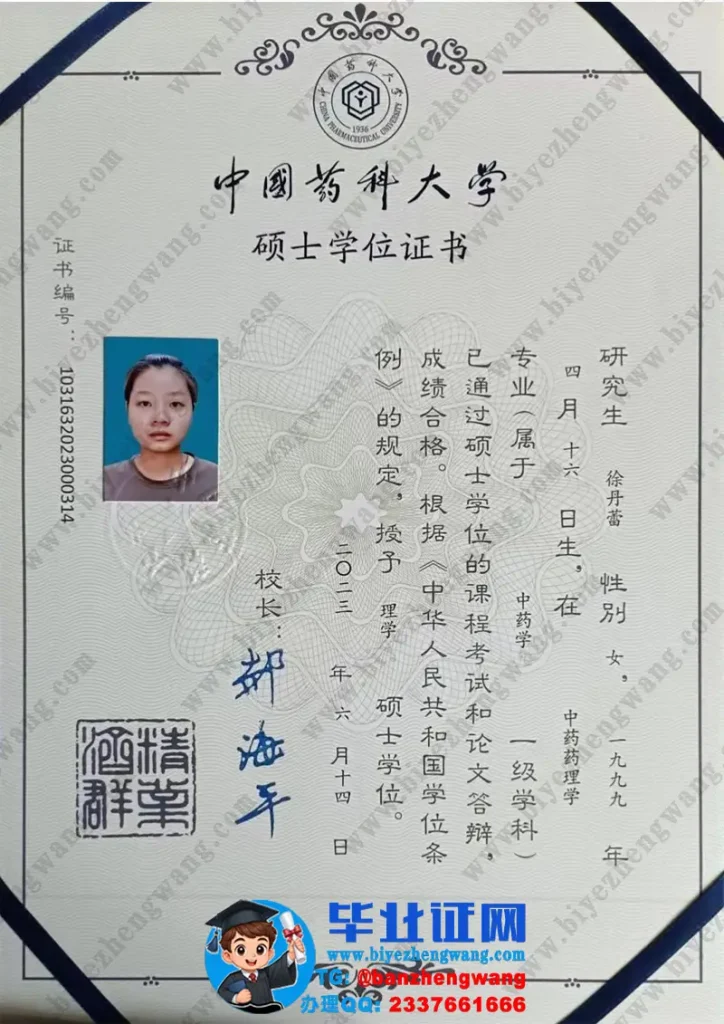 中国药科大学
CHINA PHARMACEUTICAL UNIVERSITY
1936
中國药科大学
硕士学位证书
证书编号：1031632023000314
研究生 徐丹蕾 性别 女，一九九九 年
四月十六日生，在 中药药理学
专业（属于 中药学 一级学科）
已通过硕士学位的课程考试和论文答辩，
成绩合格。根据《中华人民共和国学位条
例》的规定，授予 理学 硕士学位。
二〇二三 年 六 月十四 日
校长：郝海平
精业
济群
www.biyezhengwang.com
毕业证网
www.biyezhengwang.com
TG: @banzhengwang
办理QQ: 2337661666